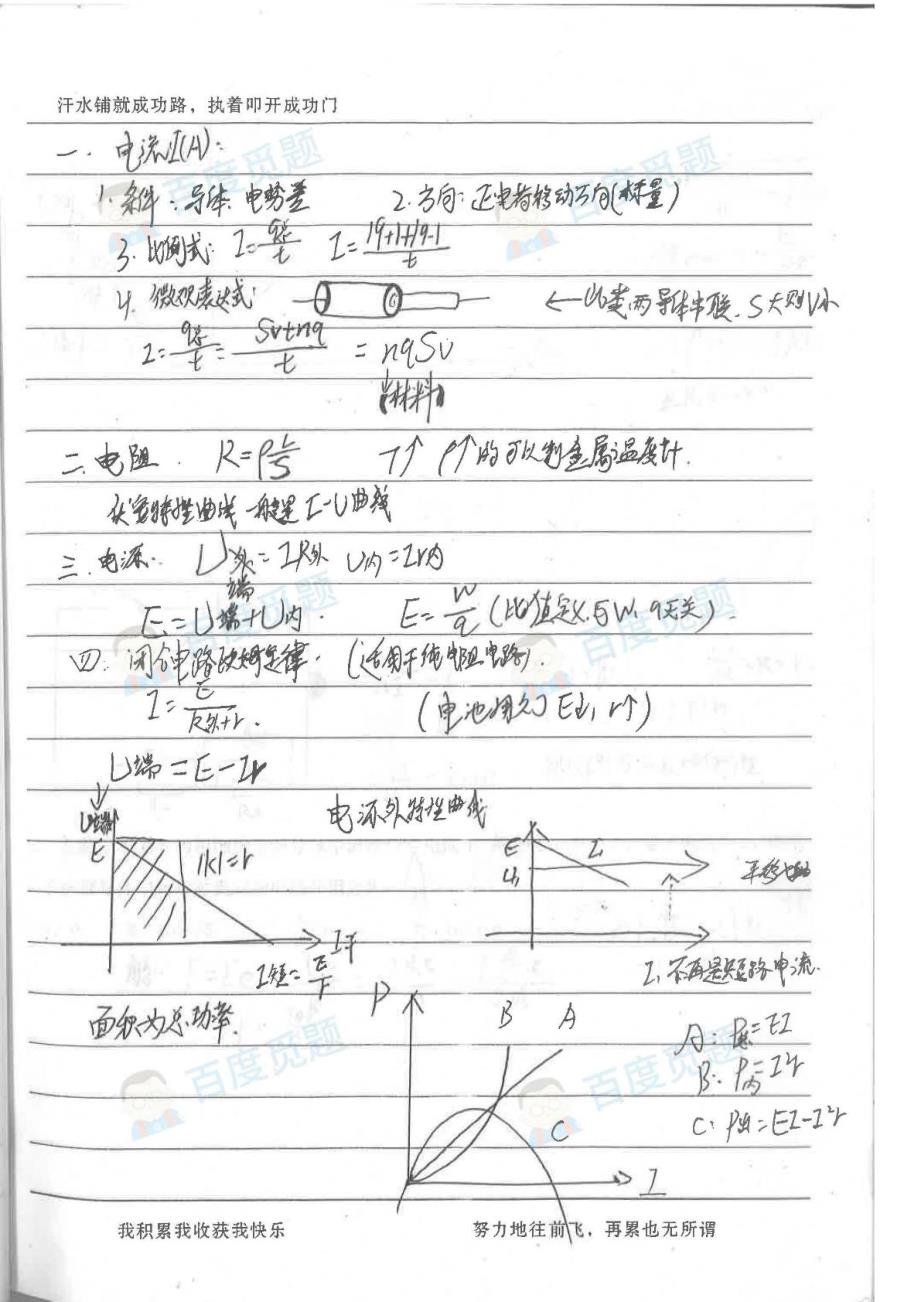 汗水铺就成功路，执着叩开成功门
一. 电流I(A):
1.条件:导体.电势差 2.方向:正电荷移动方向(标量)
3.比例式: I=q/t I=(|q+|+|q-|)/t
4.微观表达式: ←此类两导体串联.S大则V小
I=q/t=Svtnq/t=nqSv
(材料)
二.电阻. R=ρL/S T↑ ρ↑的可以制金属温度计.
伏安特性曲线一般是I-U曲线
三.电源. U外=IR外 U内=Ir内
端
E=U端+U内. E=W/q(比值定义.与W,q无关).
四.闭合电路欧姆定律.(适用于纯电阻电路).
I=E/(R外+r). (电池用久了E↓,r↑)
U端=E-Ir
电源外特性曲线
U端 E |k|=r I干
I短=E/r
E U1 I1 平移
I1不再是短路电流.
面积为总功率.
P B A C I
A: P总=EI
B: P内=I²r
C: P出=EI-I²r
我积累我收获我快乐 努力地往前飞，再累也无所谓
百度觅题
百度觅题
百度觅题
百度觅题
百度觅题
百度觅题